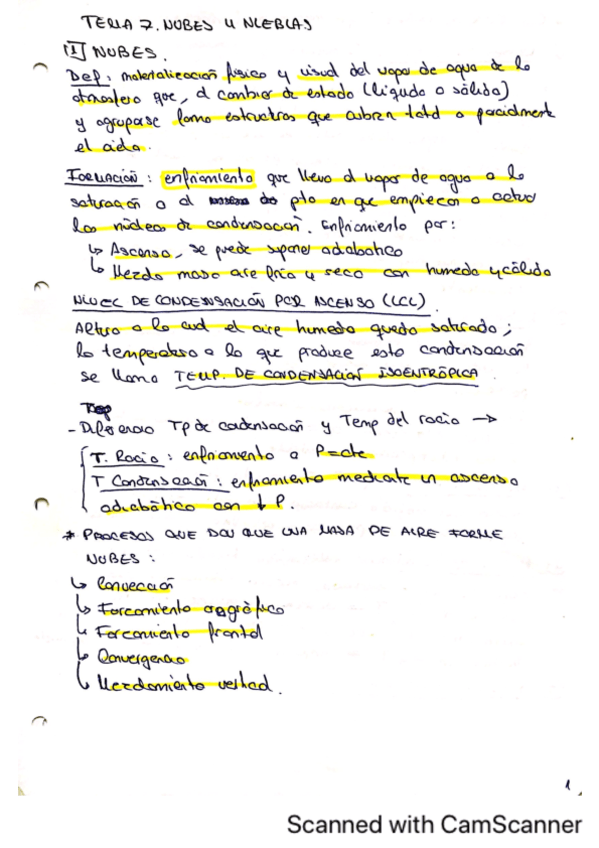 TEMA 7. NUBES Y NIEBLAS
1 NUBES.
Def: materialización físico y visual del vapor de agua de la
atmosfera que, al cambiar de estado (líquido o sólida)
y agruparse forma estructuras que cubren total o parcialmente
el cielo.
FORMACIÓN: enfriamiento que lleva al vapor de agua a la
saturación o al pto en que empiecen a actuar
los núcleos de condensación. Enfriamiento por:
↳ Ascenso, se puede suponer adiabático
↳ Mezcla masa aire fría y seco con humeda y cálida
NIVEL DE CONDENSACIÓN POR ASCENSO (LCL).
Altura a la cual el aire humedo queda saturado;
la temperatura a la que produce esta condensación
se llama TEMP. DE CONDENSACIÓN ISOENTRÓPICA
- Diferencia Tp de condensación y Temp del rocio →
T. Rocío: enfriamiento a P=cte
T Condensación: enfriamiento mediante un ascenso
adiabático con ↓ P.
* PROCESOS QUE DAN QUE UNA MASA DE AIRE FORME
NUBES:
↳ Convección
↳ Forzamiento orográfico
↳ Forzamiento frontal
↳ Convergencia
↳ Mezclamiento vertical.
1
Scanned with CamScanner